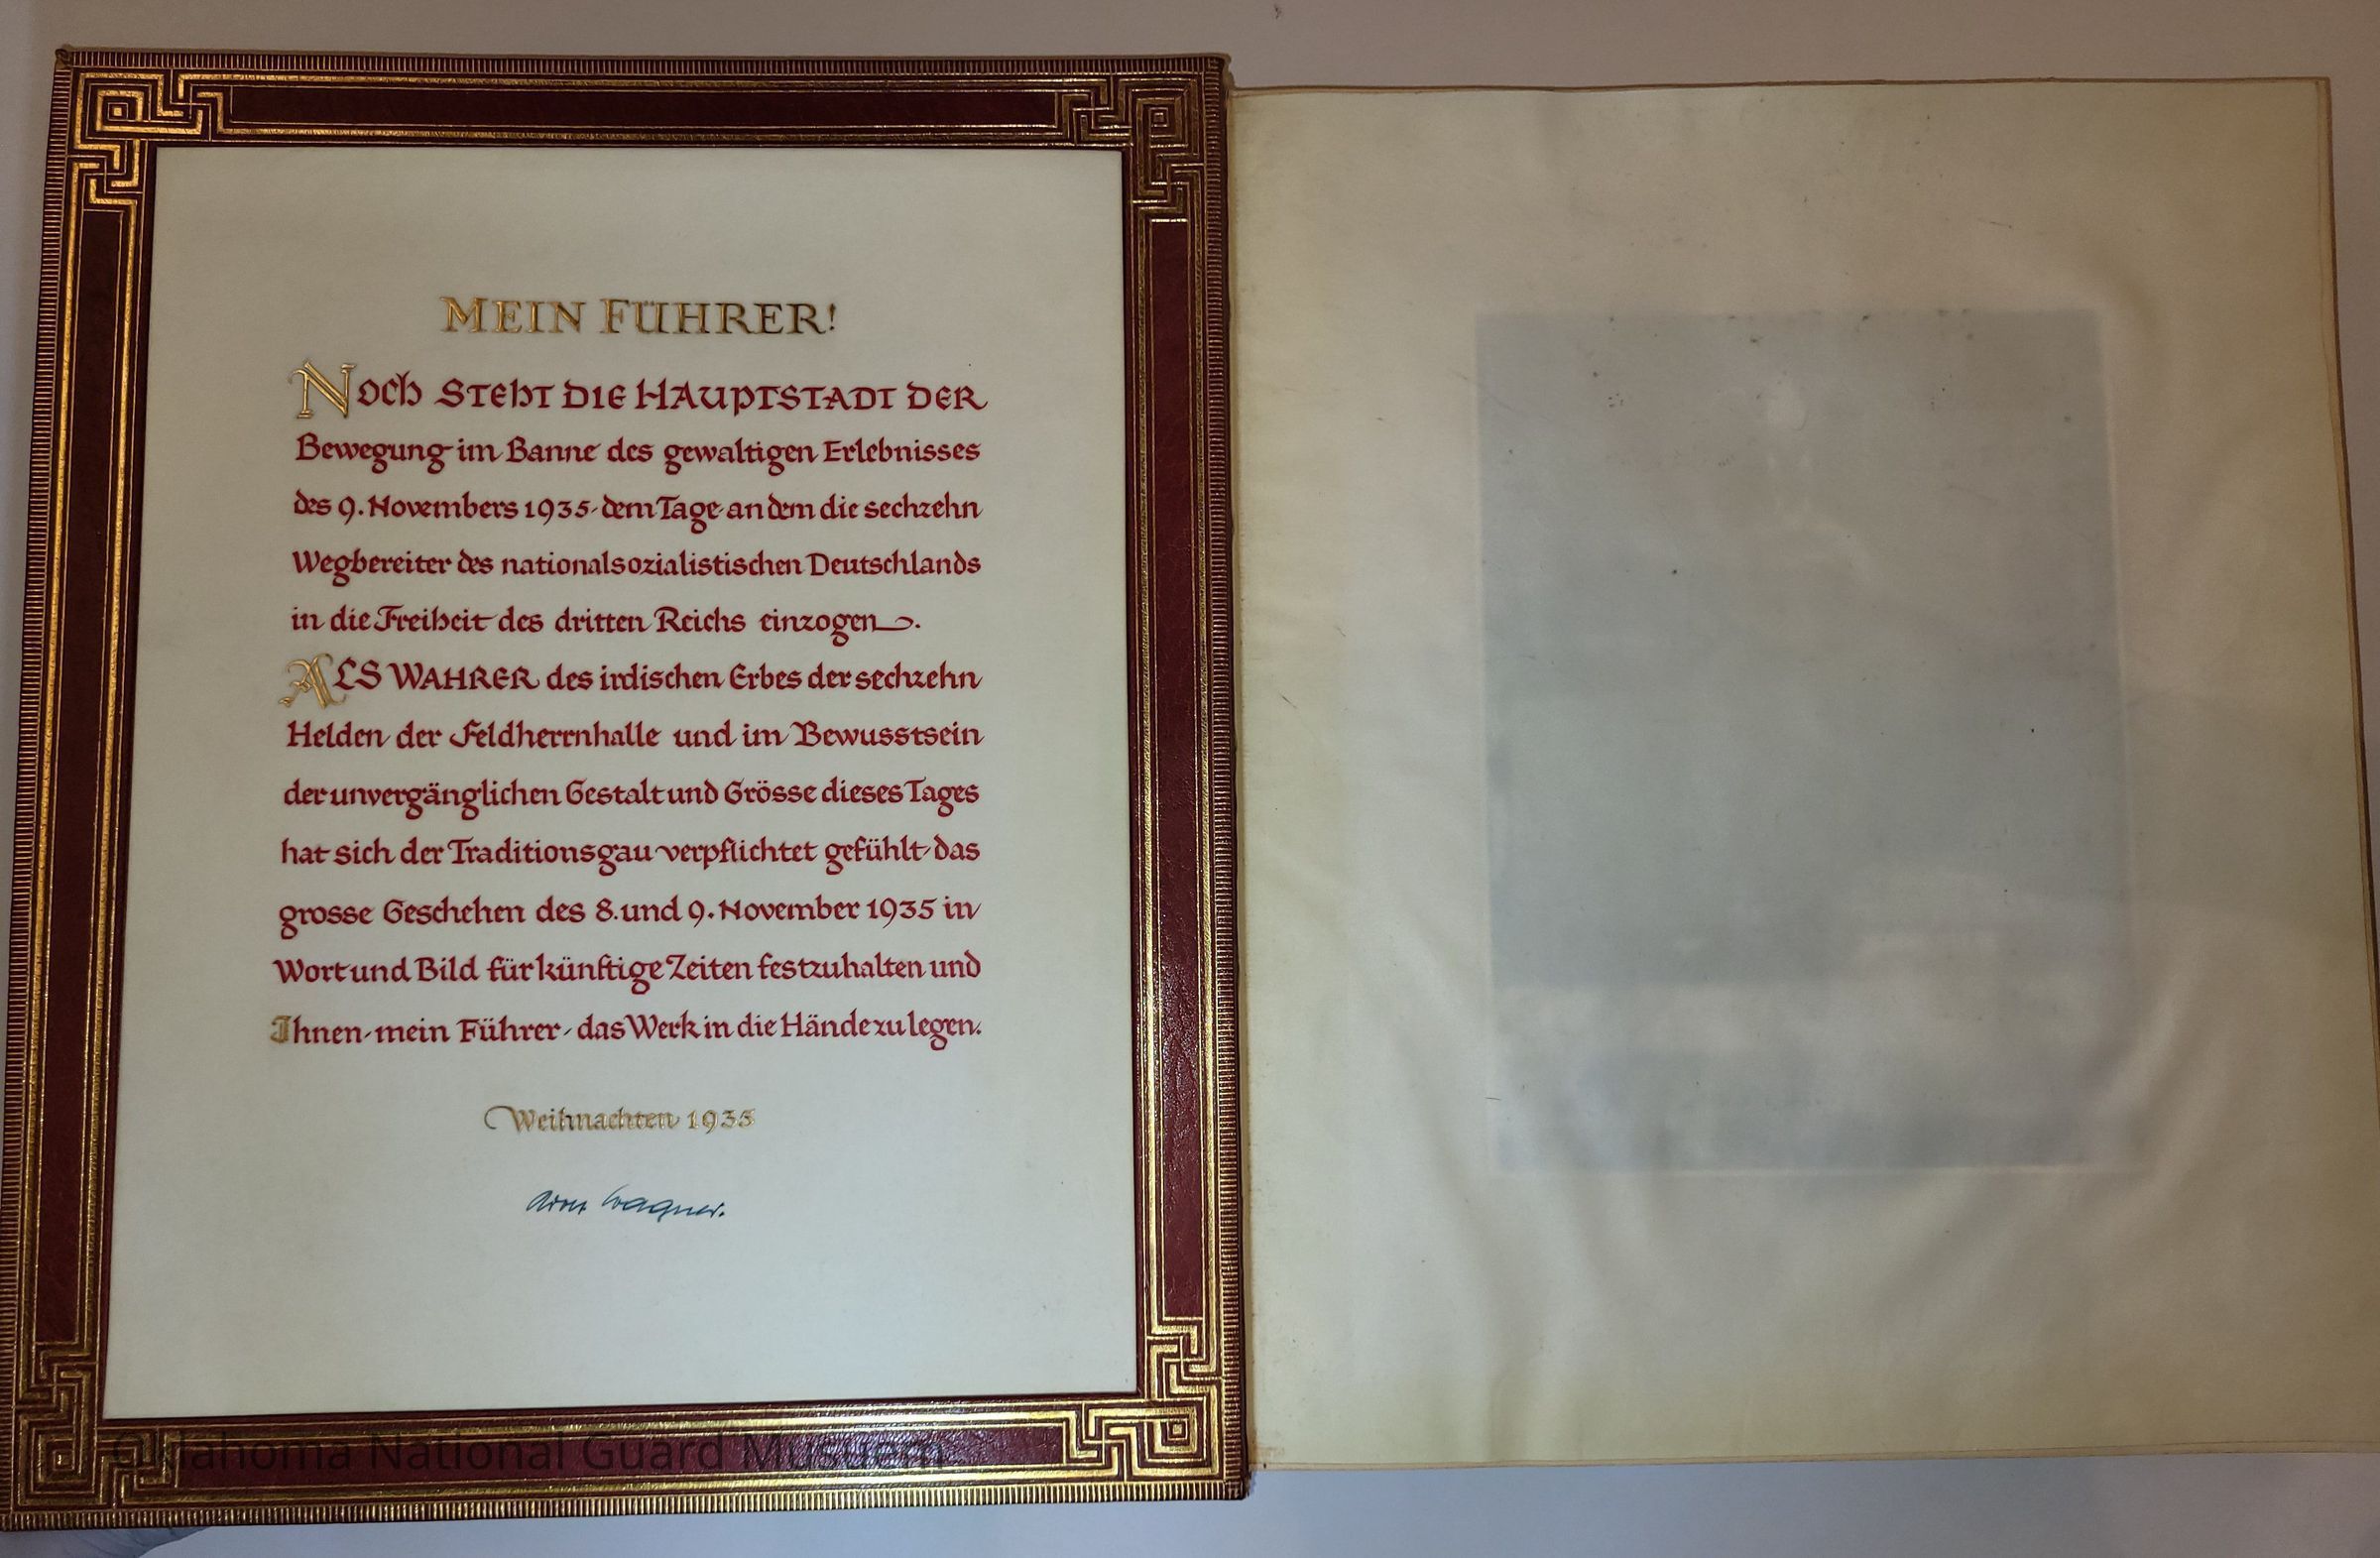 MEIN FÜHRER!
Noch steht die Hauptstadt der
Bewegung im Banne des gewaltigen Erlebnisses
des 9. Novembers 1935, dem Tage, an dem die sechzehn
Wegbereiter des nationalsozialistischen Deutschlands
in die Freiheit des dritten Reichs einzogen.
Als Wahrer des irdischen Erbes der sechzehn
Helden der Feldherrnhalle und im Bewusstsein
der unvergänglichen Gestalt und Grösse dieses Tages
hat sich der Traditionsgau verpflichtet gefühlt, das
grosse Geschehen des 8. und 9. November 1935 in
Wort und Bild für künftige Zeiten festzuhalten und
Ihnen, mein Führer, das Werk in die Hände zu legen.
Weihnachten 1935
Wagner.
Oklahoma National Guard Musuem